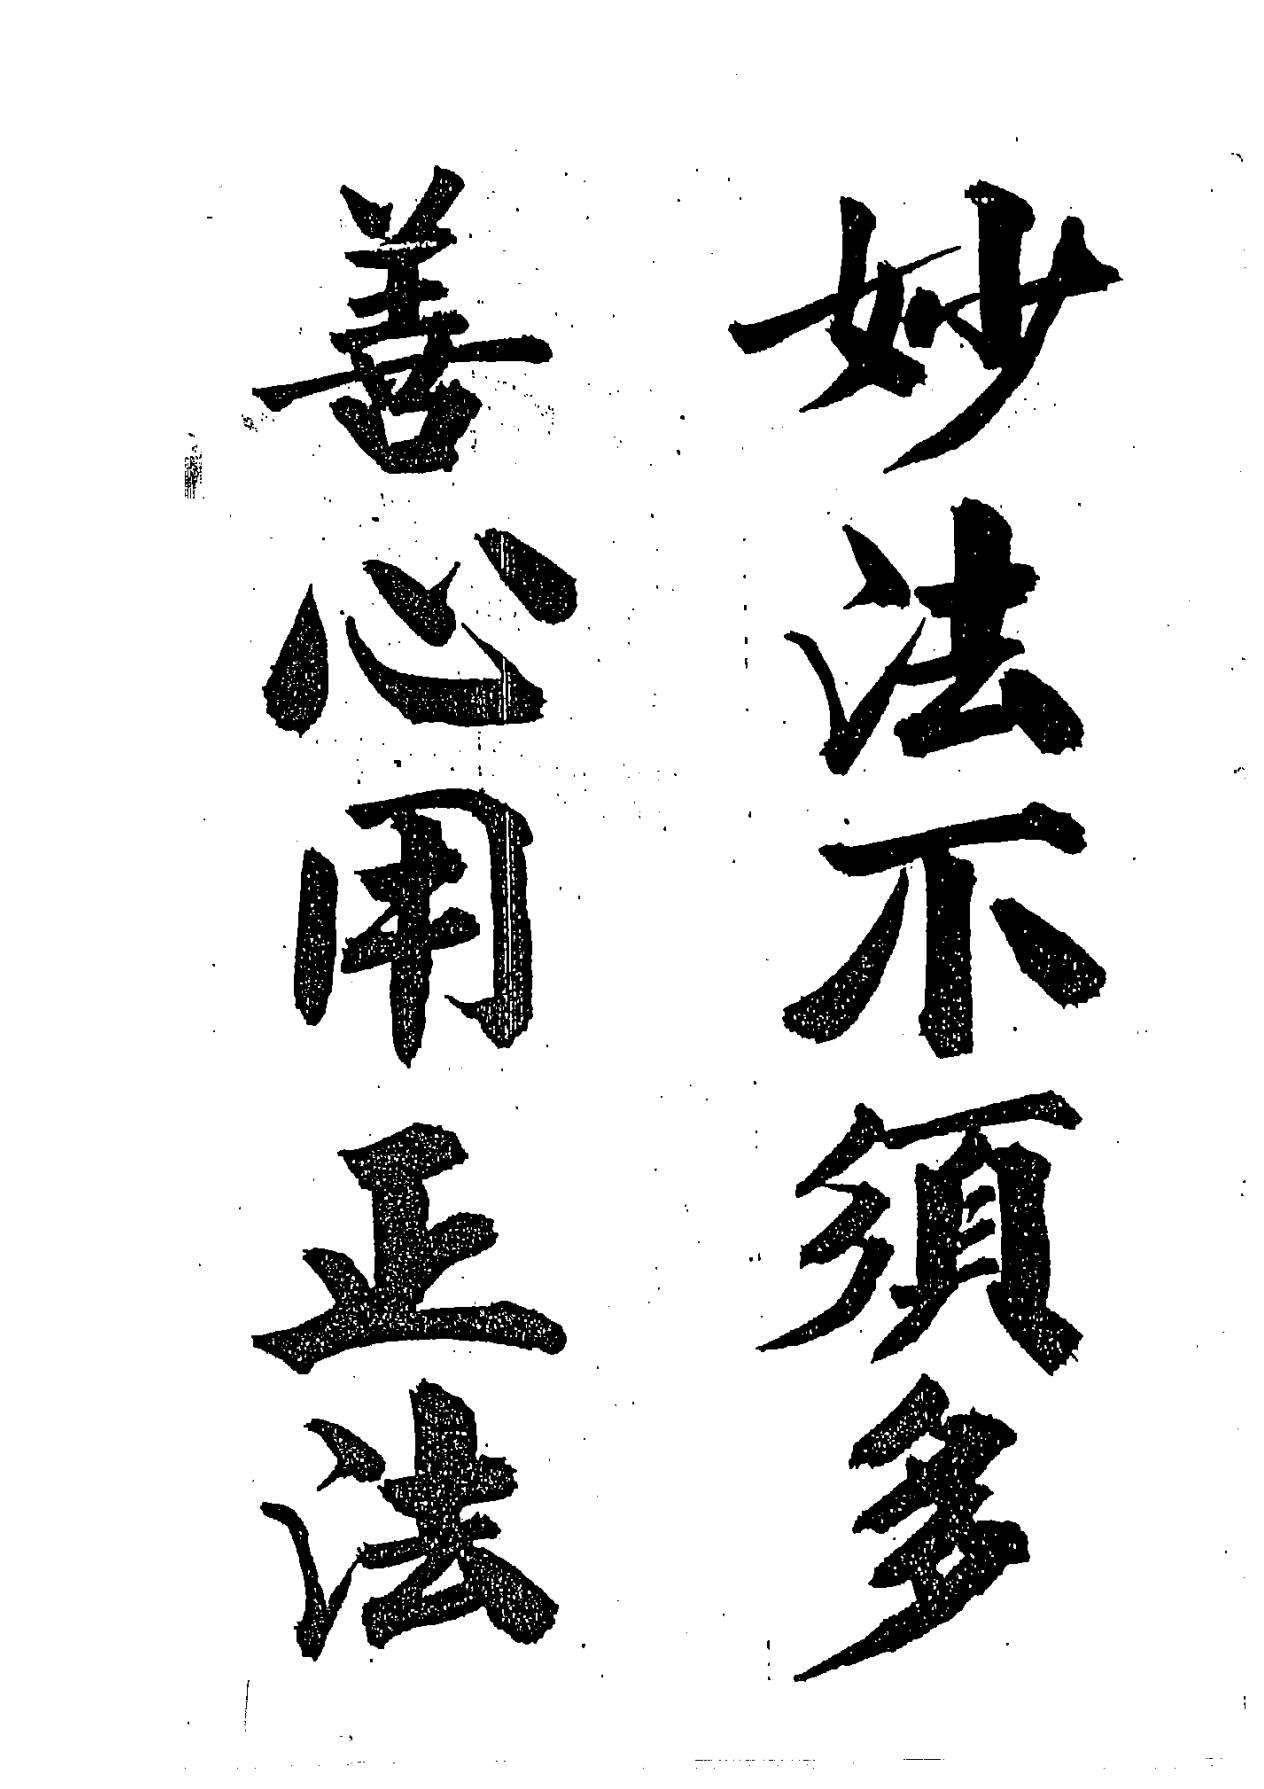 妙法不須多
善心用正法